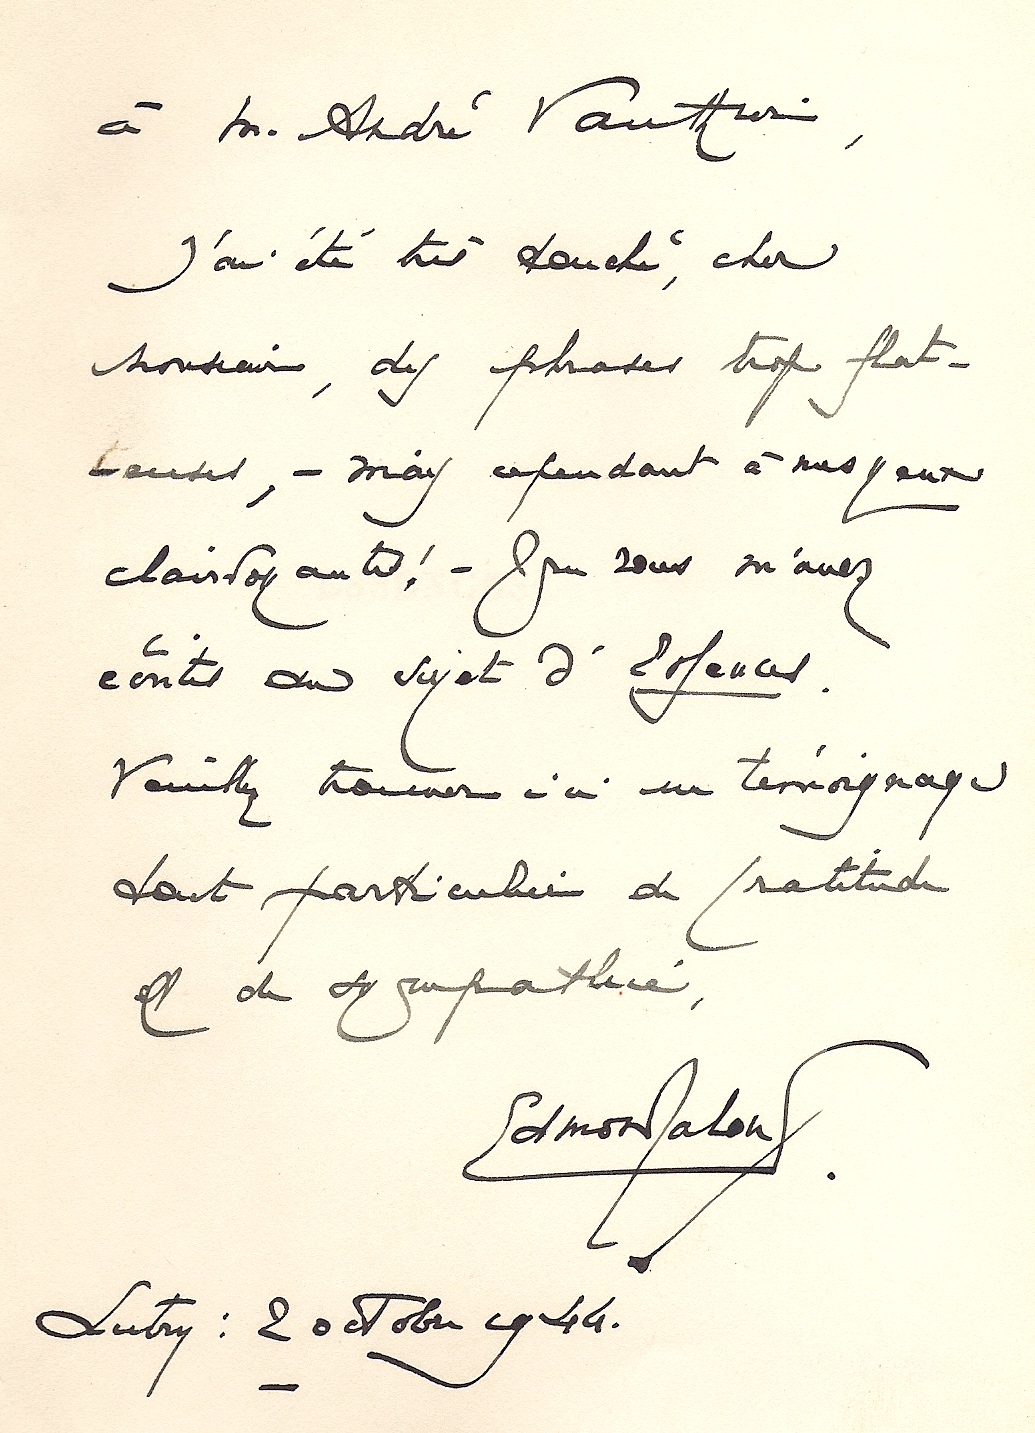 à M. André
J'ai été très touché, cher
monsieur, des phrases trop flat-
teuses, – mais cependant à mes yeux
clairvoyantes! – que vous m'avez
écrites au sujet d'Essences.
Veuillez trouver ici un témoignage
tout particulier de gratitude
et de sympathie,
Edmond Jaloux.
Lutry : 2 octobre 1944.